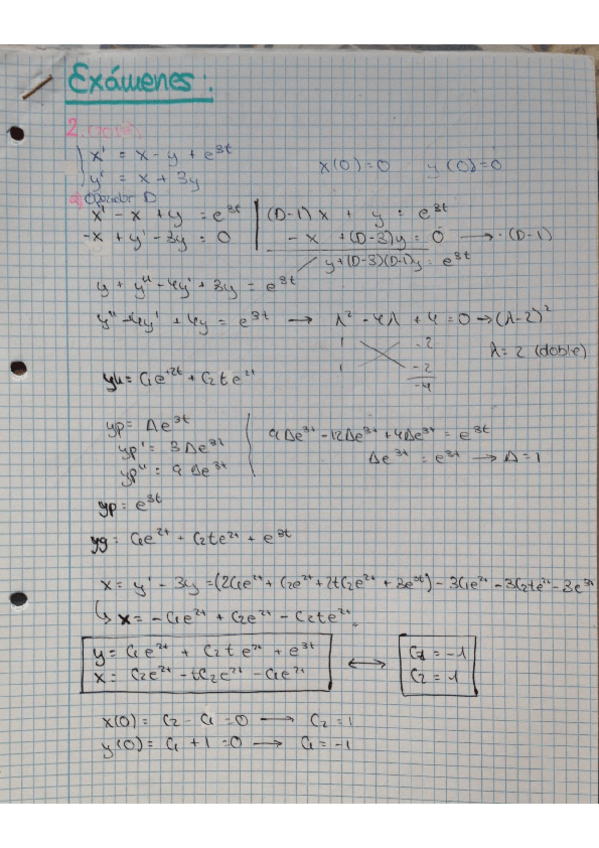 Exámenes:
2.
x' = x - y + e^3t
x(0)=0 y(0)=0
y' = x + 3y
a) Operador D
x' - x + y = e^3t | (D-1)x + y = e^3t
-x + y' - 3y = 0 | -x + (D-3)y = 0 → ·(D-1)
y + (D-3)(D-1)y = e^3t
y + y'' - 4y' + 3y = e^3t
y'' - 4y' + 4y = e^3t → λ² - 4λ + 4 = 0 → (λ-2)²
1 -2
λ = 2 (doble)
1 -2
-4
yH = C1e^2t + C2te^2t
yp = Ae^3t
yp' = 3Ae^3t
yp'' = 9Ae^3t
9Ae^3t - 12Ae^3t + 4Ae^3t = e^3t
Ae^3t = e^3t → A = 1
yp = e^3t
yg = C1e^2t + C2te^2t + e^3t
x = y' - 3y = (2C1e^2t + C2e^2t + 2tC2e^2t + 3e^3t) - 3C1e^2t - 3C2te^2t - 3e^3t
↳ x = -C1e^2t + C2e^2t - C2te^2t
y = C1e^2t + C2te^2t + e^3t ↔ C1 = -1
x = C2e^2t - tC2e^2t - C1e^2t C2 = -1
x(0) = C2 - C1 = 0 → C2 = 1
y(0) = C1 + 1 = 0 → C1 = -1